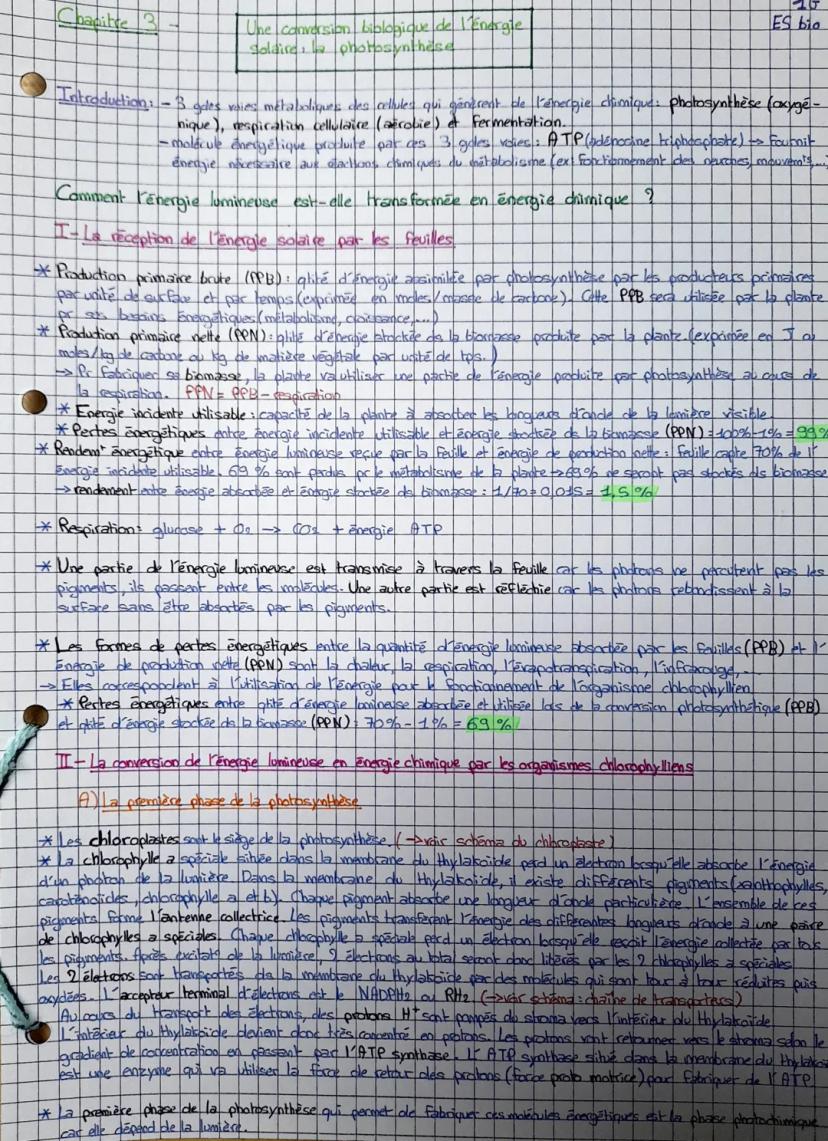 1G
Chapitre 3 - Une conversion biologique de l'énergie ES bio
solaire : la photosynthèse
Introduction : - 3 gdes voies métaboliques des cellules qui génèrent de l'énergie chimique : photosynthèse (oxygé-
nique), respiration cellulaire (aérobie) et fermentation.
- molécule énergétique produite par ces 3 gdes voies : ATP (adénocine triphosphate) → Fournit
énergie nécessaire aux réactions chimiques du métabolisme (ex: fonctionnement des neurones, mouvem^ts,...
Comment l'énergie lumineuse est-elle transformée en énergie chimique ?
I - La réception de l'énergie solaire par les feuilles
* Production primaire brute (PPB) : qtité d'énergie assimilée par photosynthèse par les producteurs primaires
par unité de surface et par temps (exprimée en moles/masse de carbone). Cette PPB sera utilisée par la plante
pr ses besoins énergétiques (métabolisme, croissance,...)
* Production primaire nette (PPN) : qtité d'énergie stockée ds la biomasse produite par la plante. (exprimée en J ou
moles/kg de carbone ou kg de matière végétale par unité de tps.)
→ Pr fabriquer sa biomasse, la plante va utiliser une partie de l'énergie produite par photosynthèse au cours de
la respiration. PPN = PPB - respiration
* Energie incidente utilisable : capacité de la plante à absorber les longueurs d'onde de la lumière visible
* Pertes énergétiques entre énergie incidente utilisable et énergie stockée ds la biomasse (PPN) = 100% - 1% = 99%
* Rendem^t énergétique entre énergie lumineuse reçue par la feuille et énergie de production nette : feuille capte 70% de l'
énergie incidente utilisable. 69 % sont perdus pr le métabolisme de la plante → 69% ne seront pas stockés ds biomasse
→ rendement entre énergie absorbée et énergie stockée ds biomasse : 1/70 = 0,015 = 1,5 %
* Respiration : glucose + O2 → CO2 + énergie ATP
* Une partie de l'énergie lumineuse est transmise à travers la feuille car les photons ne percutent pas les
pigments, ils passent entre les molécules. Une autre partie est réfléchie car les photons rebondissent à la
surface sans être absorbés par les pigments.
* Les formes de pertes énergétiques entre la quantité d'énergie lumineuse absorbée par les feuilles (PPB) et l'
énergie de production nette (PPN) sont la chaleur, la respiration, l'évapotranspiration, l'infrarouge,...
→ Elles correspondent à l'utilisation de l'énergie par le fonctionnement de l'organisme chlorophyllien
* Pertes énergétiques entre qtité d'énergie lumineuse absorbée et utilisée lors de la conversion photosynthétique (PPB)
et qtité d'énergie stockée ds la biomasse (PPN) : 70% - 1% = 69 %
II - La conversion de l'énergie lumineuse en énergie chimique par les organismes chlorophylliens
A) La première phase de la photosynthèse
* Les chloroplastes sont le siège de la photosynthèse. (→ voir schéma du chloroplaste)
* La chlorophylle a spéciale située dans la membrane du thylakoïde perd un électron lorsqu'elle absorbe l'énergie
d'un photon de la lumière. Dans la membrane du thylakoïde, il existe différents pigments (xanthophylles,
caroténoïdes, chlorophylle a et b). Chaque pigment absorbe une longueur d'onde particulière. L'ensemble de ces
pigments forme l'antenne collectrice. Les pigments transfèrent l'énergie des différentes longueurs d'onde à une paire
de chlorophylles a spéciales. Chaque chlorophylle a spéciale perd un électron lorsqu'elle reçoit l'énergie collectée par tous
les pigments. Après excitat° de la lumière, 2 électrons au total seront donc libérés par les 2 chlorophylles a spéciales
Les 2 électrons sont transportés ds la membrane du thylakoïde par des molécules qui sont tour à tour réduites puis
oxydées. L'accepteur terminal d'électrons est le NADPH2 ou RH2 (→ voir schéma : chaîne de transporteurs)
Au cours du transport des électrons, des protons H+ sont pompés du stroma vers l'intérieur du thylakoïde.
L'intérieur du thylakoïde devient donc très concentré en protons. Les protons vont retourner vers le stroma selon le
gradient de concentration en passant par l'ATP synthase. L'ATP synthase situé dans la membrane du thylakoï
est une enzyme qui va utiliser la force de retour des protons (force proto matrice) pour fabriquer de l'ATP
* La première phase de la photosynthèse qui permet de fabriquer ces molécules énergétiques est la phase photochimique
car elle dépend de la lumière.